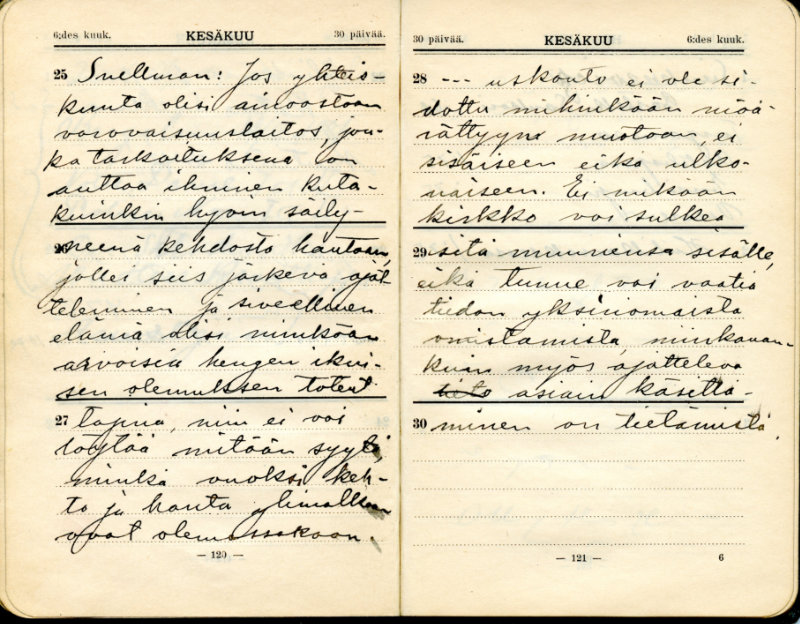 6:des kuuk. KESÄKUU 30 päivää.
25 Snellman: Jos yhteis-
kunta olisi ainoastaan
varovaisuuslaitos, jon-
ka tarkoituksena on
auttaa ihminen kuta-
kuinkin hyvin säily-
26 neenä kehdosta hautaan,
jollei siis järkevä ajat
teleminen ja siveellinen
elämä olisi minkään
arvoisia hengen ikui-
sen olemuksen toteut
27 tajina, niin ei voi
löytää mitään syytä,
minkä vuoksi keh-
to ja hauta ylimalkaan
ovat olemassakaan.
— 120 —
30 päivää. KESÄKUU 6:des kuuk.
28 --- uskonto ei ole si-
dottu mihinkään mää-
rättyyn muotoon, ei
sisäiseen eikä ulko-
naiseen. Ei mikään
kirkko voi sulkea
29 sitä muuriensa sisälle,
eikä tunne voi vaatia
tiedon yksinomaista
omistamista, minkävuok-
kuin myös ajatteleva
tieto asiain käsittä-
30 minen on tietämistä.
— 121 — 6